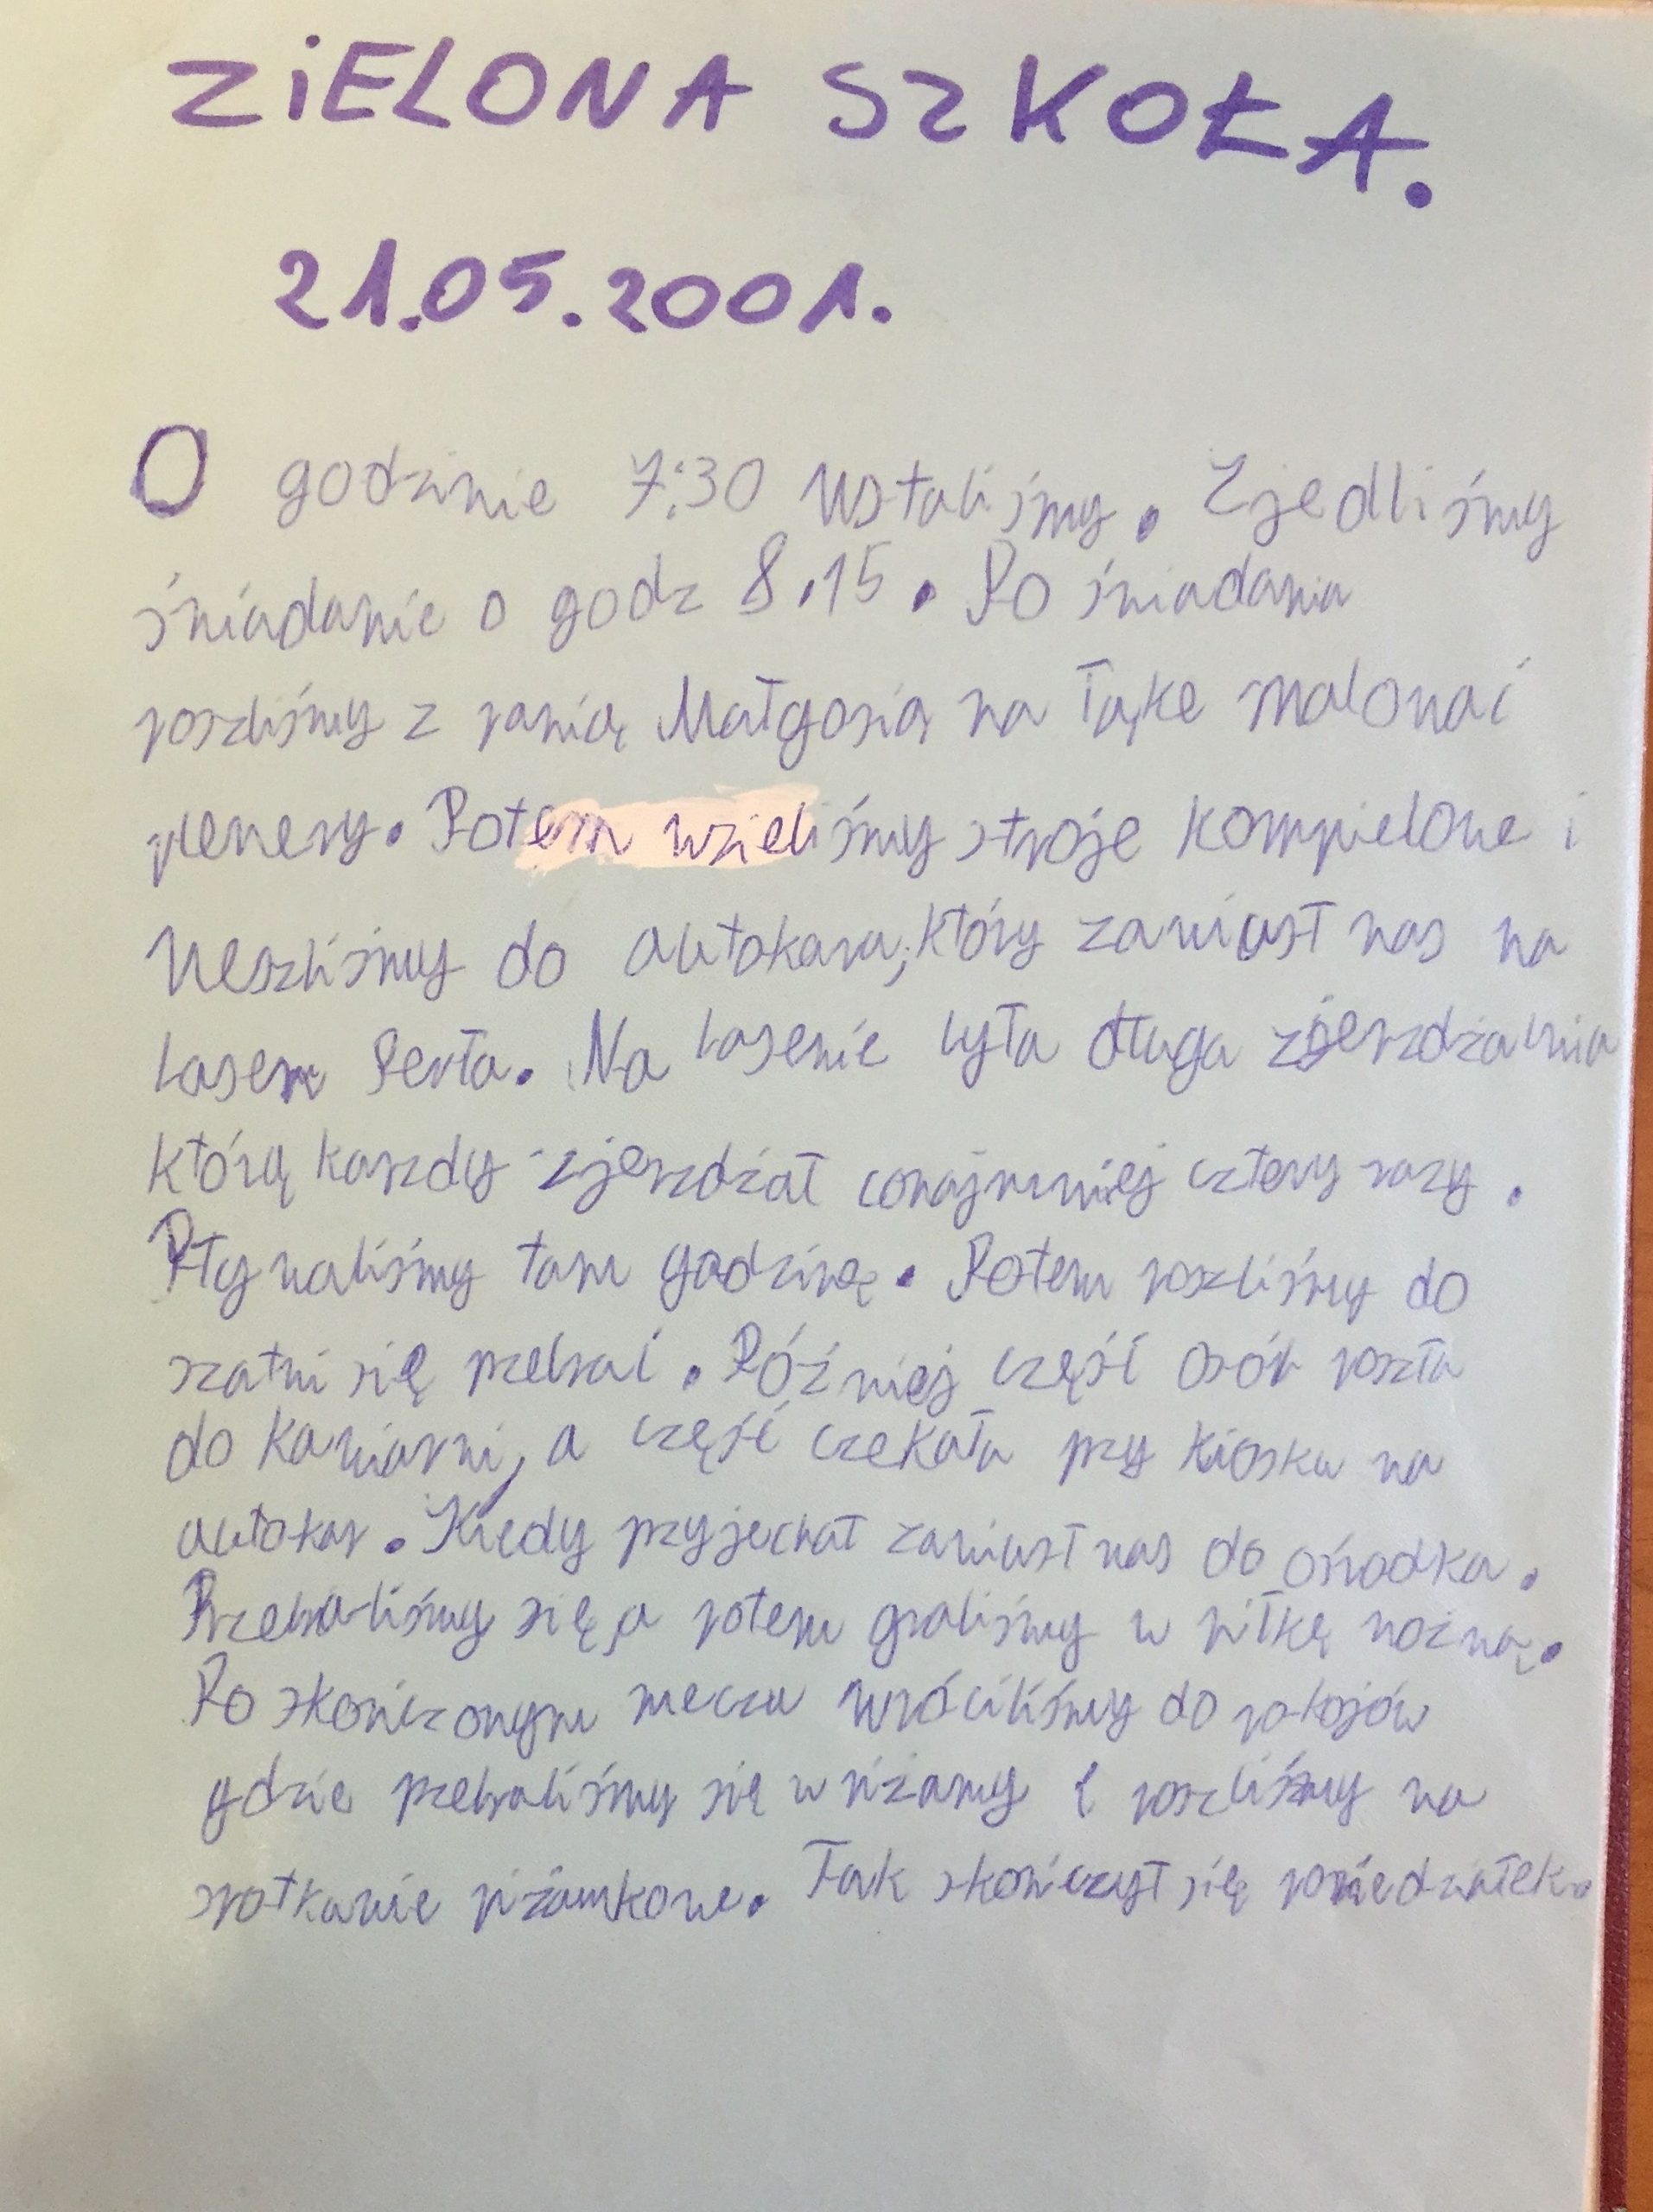 ZiELONA SZKOŁA.
21.05.2001.
O godzinie 7:30 wstaliśmy. Zjedliśmy
śniadanie o godz 8.15. Po śniadania
poszliśmy z panią Małgosią na łąke malować
plenery. Potem wzieliśmy stroje kompielowe i
weszliśmy do autokara, który zawiust nas na
basem Perła. Na basenie była długa zjerzdżalnia
którą karzdy zjerzdżał conajmniej cztery razy.
Pływaliśmy tam godzinę. Potem poszliśmy do
szatni się przebrać. Później część osób poszła
do kawiarni, a część czekała przy kiosku na
autokar. Kiedy przyjechał zawiusł nas do ośrodka.
Przebraliśmy się, a potem graliśmy w piłkę nożną.
Po skończonym meczu wróciliśmy do pokojów
gdzie przebraliśmy się w piżamy i poszliśmy na
spotkanie piżamkowe. Tak skończył się poniedziałek.